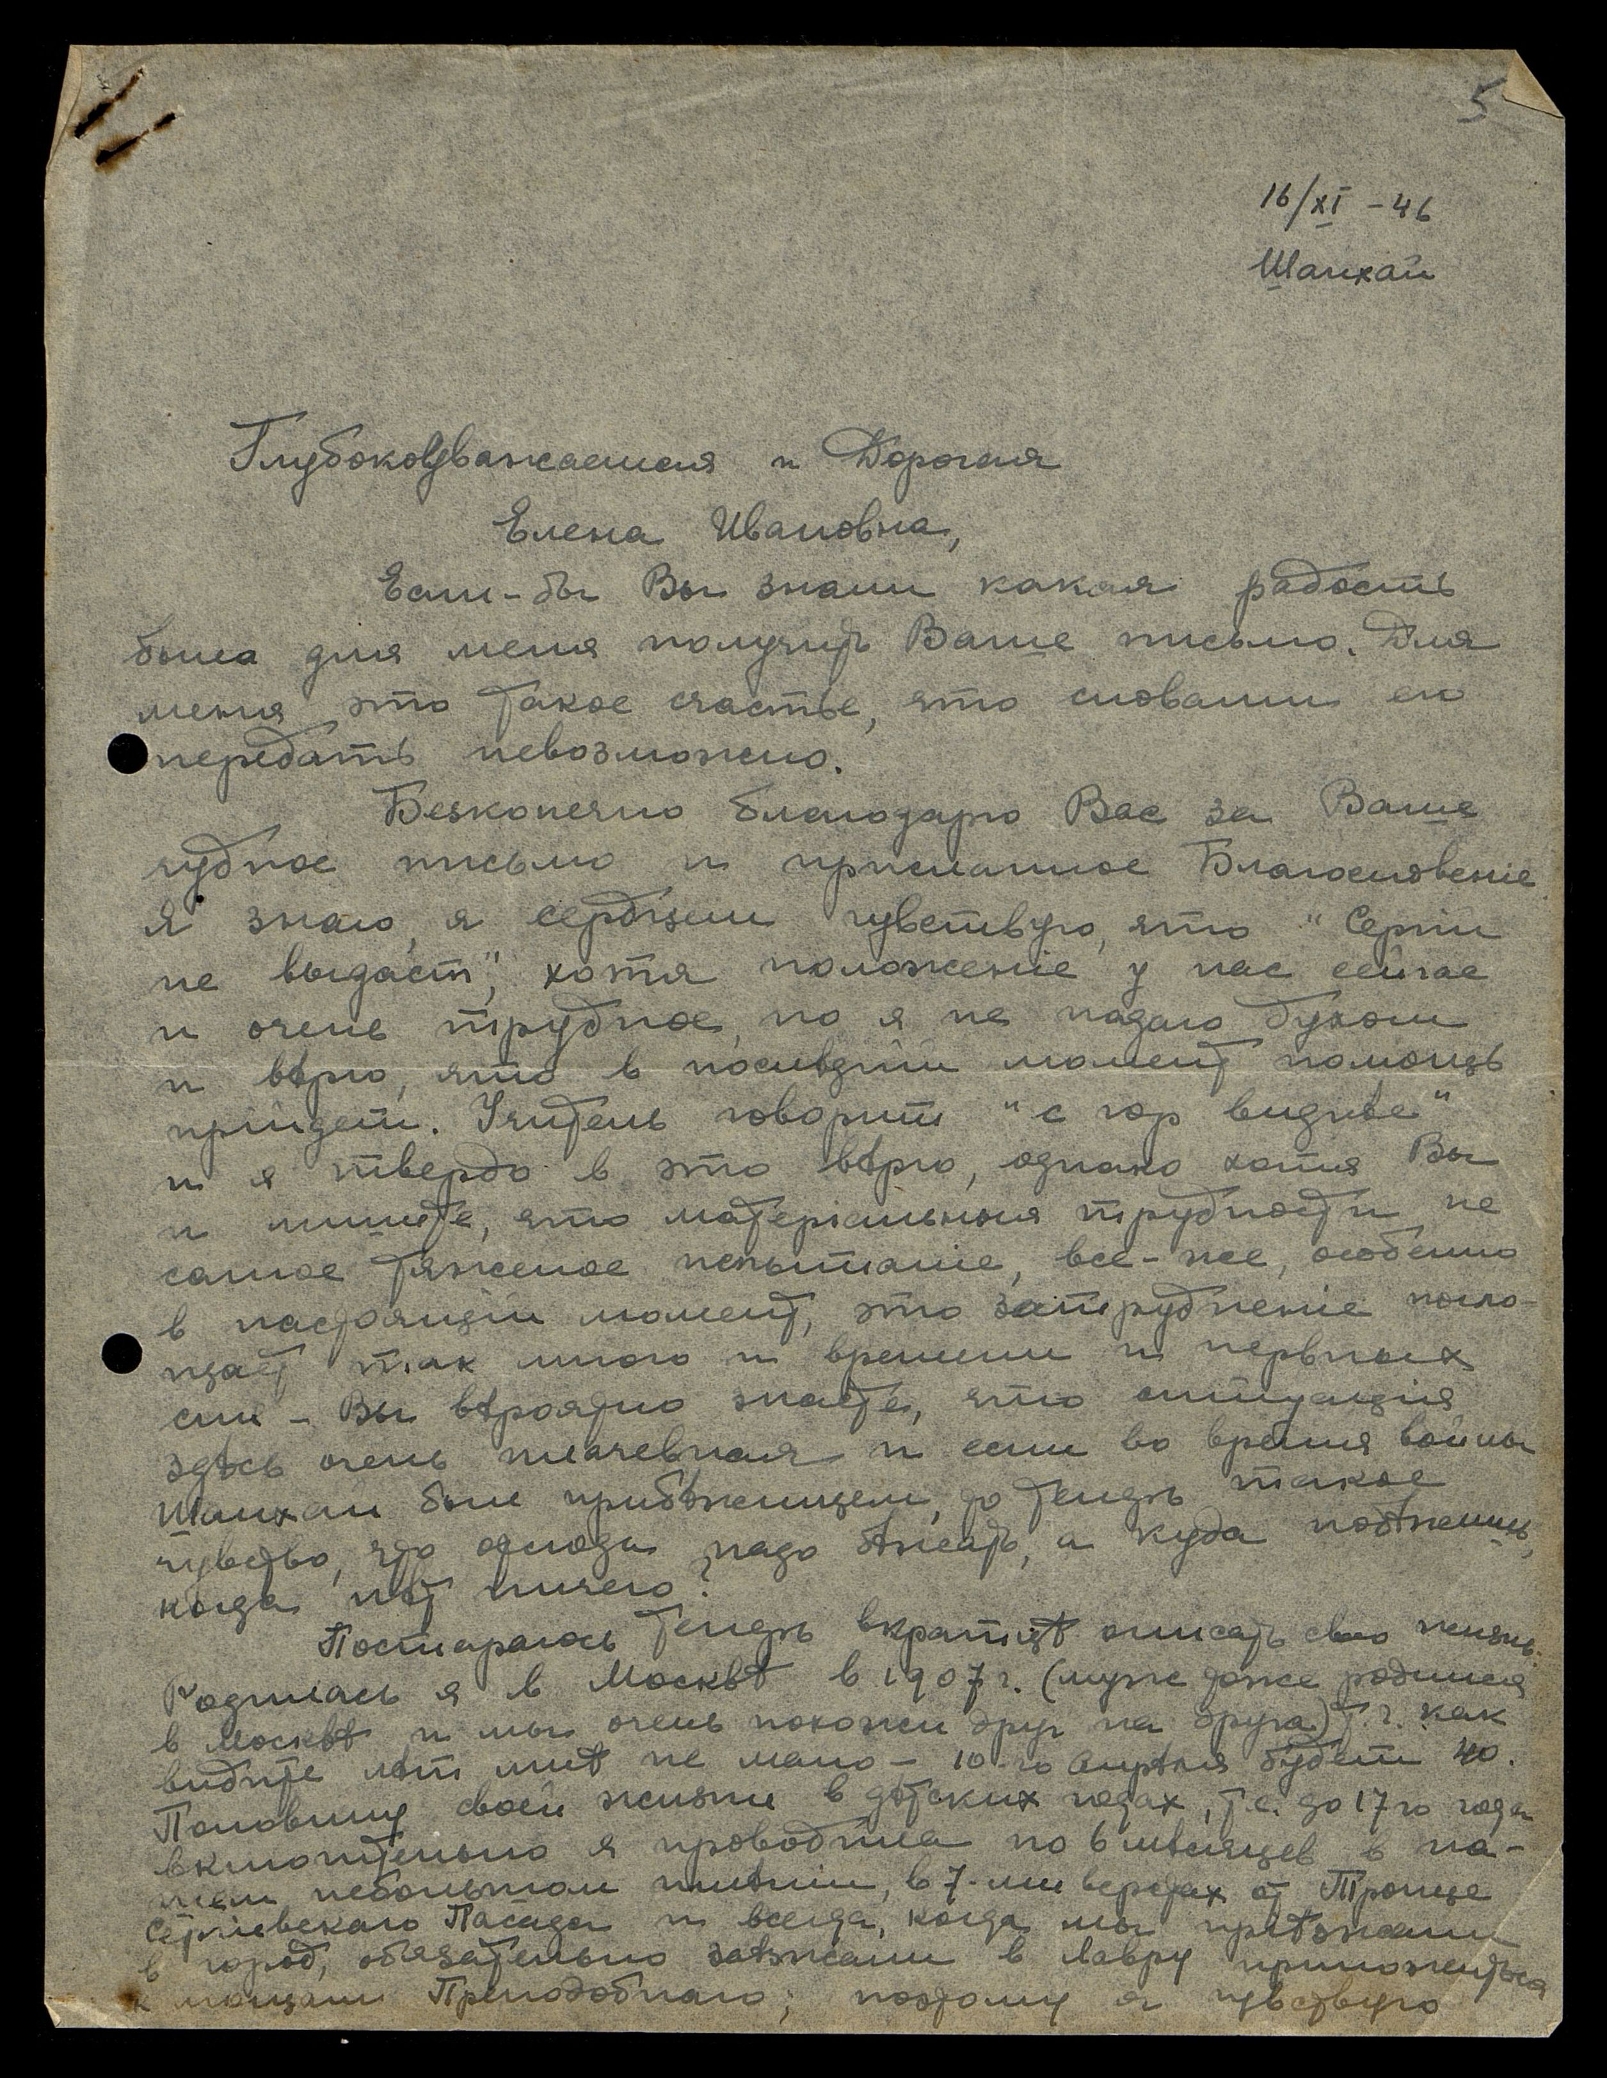 5
16/XI – 46
Шанхай
Глубокоуважаемая и Дорогая
Елена Ивановна,
Если-бы Вы знали какая радость
была для меня получить Ваше письмо. Для
меня это такое счастье, что словами его
передать невозможно.
Безконечно благодарю Вас за Ваше
чудное письмо и присланное Благословение
Я знаю, я сердцем чувствую, что "Сергiй
не выдаст", хотя положенiе у нас сейчас
и очень трудное, но я не падаю духом
и вѣрю, что в послѣднiй момент помощь
прийдет. Учитель говорит "с гор виднѣе"
и я твердо в это вѣрю, однако хотя Вы
и пишите, что матерiальныя трудности не
самое тяжелое испытанiе, все-же, особенно
в настоящiй момент, это затрудненiе погло-
щает так много и времени и нервных
сил – Вы вѣроятно знаете, что ситуацiя
здѣсь очень плачевная и если во время войны
Шанхай был прибѣжищем, то теперь такое
чувство, что отсюда надо бѣжать, а куда побѣжишь,
когда нѣт ничего?
Постараюсь теперь вкратцѣ описать свою жизнь.
Родилась я в Москвѣ в 1907 г. (муж тоже родился
в Москвѣ и мы очень похожи друг на друга) т.ч. как
видите лѣт мнѣ не мало – 10-го Апрѣля будет 40.
Половину своей жизни в дѣтских годах, т.е. до 17го года
включительно я проводила по 6 мѣсяцев в на-
шем небольшом имѣнiи, в 7-ми верстах от Троице
Сергiевскаго Посада и всегда, когда мы прiѣзжали
в город, обязательно заѣзжали в Лавру приложиться
к мощам Преподобнаго; поэтому я чувствую